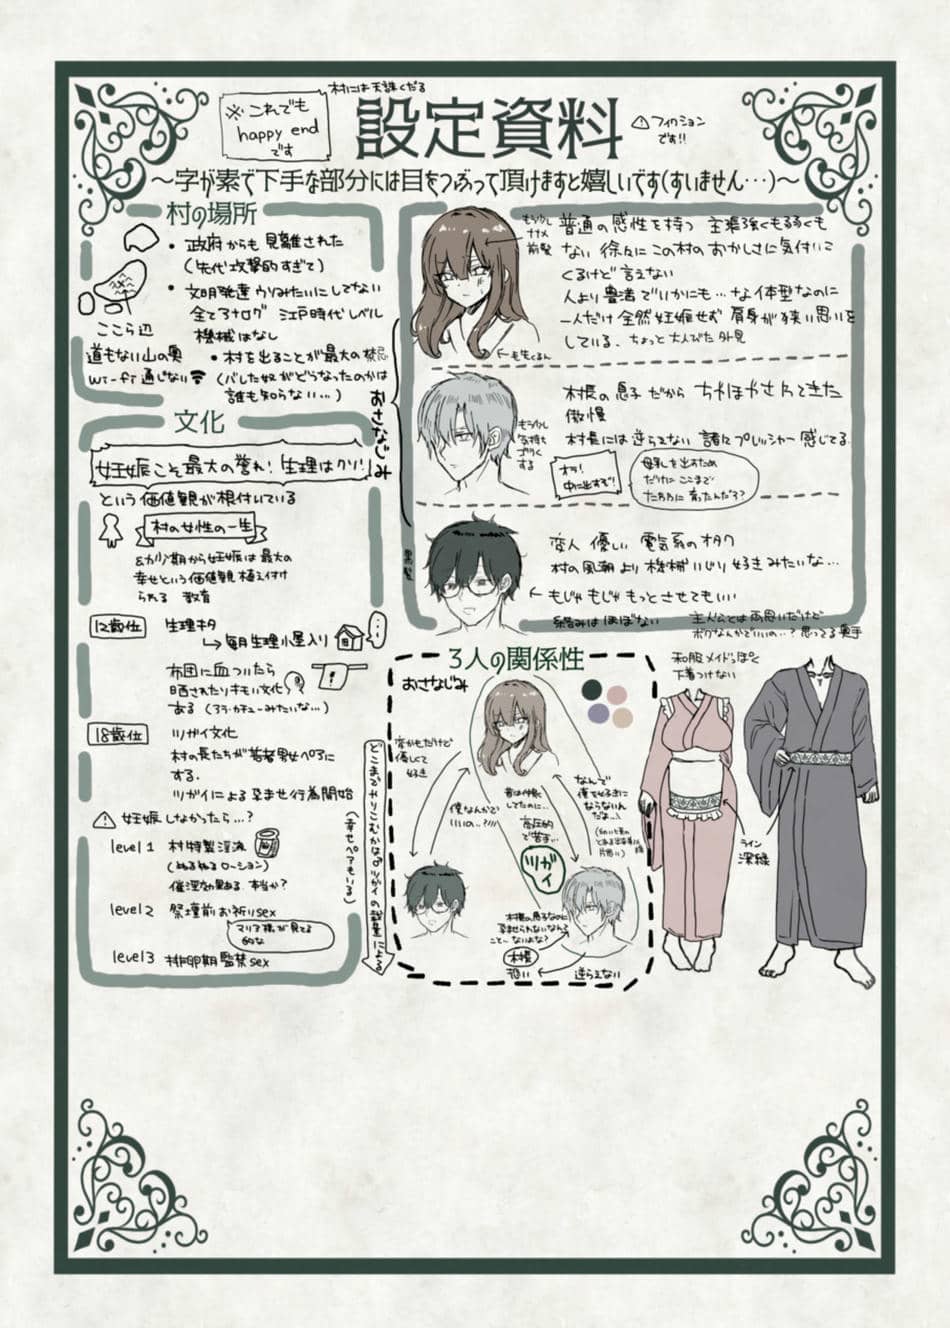 村には天誅くだる
※これでも
happy end
です
設定資料
⚠フィクション
です!!
～字が素で下手な部分には目をつぶって頂けますと嬉しいです(すいません…)～
村の場所
・政府からも見離された
(先代攻撃的すぎて)
・文明発達ウリみたいにしてない
全てアナログ 江戸時代レベル
機械はなし
ここら辺
道もない山の奥
Wi-Fi通じない
・村を出ることが最大の禁忌
(バレた奴がどうなったのかは
誰も知らない…)
文化
妊娠こそ最大の誉れ! 生理はクソ!
という価値観が根付いている
村の女性の一生
幼少期から妊娠は最大の
幸せという価値観植え付け
られる 教育
12歳位
生理キタ
→毎月生理小屋入り
布団に血ついたら
晒されたりキモい文化
ある
18歳位
ツガイ文化
村の長たちが若者男女ペアに
する.
ツガイによる孕ませ行為開始
⚠妊娠しなかったら…?
level 1 村特製淫液
(ぬるぬるローション)
催淫効果ある.本当か?
level 2 祭壇前お祈りsex
マリア様が見てる
的な
level 3 排卵期監禁sex
おさなじみ
もう少し
ナナメ
前髪
普通の感性を持つ 主張強くも弱くも
ない 徐々にこの村のおかしさに気付いて
くるけど言えない
人より豊満でいかにも…な体型なのに
一人だけ全然妊娠せず肩身が狭い思いを
している. ちょっと大人びた外見
村長の息子だから ちやほやされてきた
傲慢
村長には逆らえない 諸々プレッシャー感じてる.
もう少し
気持ち
ゴツく
する
オラ!
中に出すぞ!
母乳を出すため
だけにここまで
たわわに育ったんだろ?
黒髪
変人 優しい 電気系のオタク
村の風潮より機械いじり好きみたいな…
←もじゃもじゃもっとさせてもいい
絡みはほぼない
主人公とは両思いだけど
ボクなんかでいいの..?思ってる奥手
3人の関係性
おさなじみ
変かもだけど
優しくて
好き
僕なんかで
いいの..?///
昔は仲良く
してたのに…
高圧的
で苦手…
ツガイ
なんで
俺を好きに
ならないん
だよ…!
村長の息子なのに
孕ませられないなんて
こと…ないよな?
村長
逆らえない
どこまでやりこむかはツガイの裁量による
(幸せペアもいる)
和服メイドっぽく
下着つけない
ライン
深緑